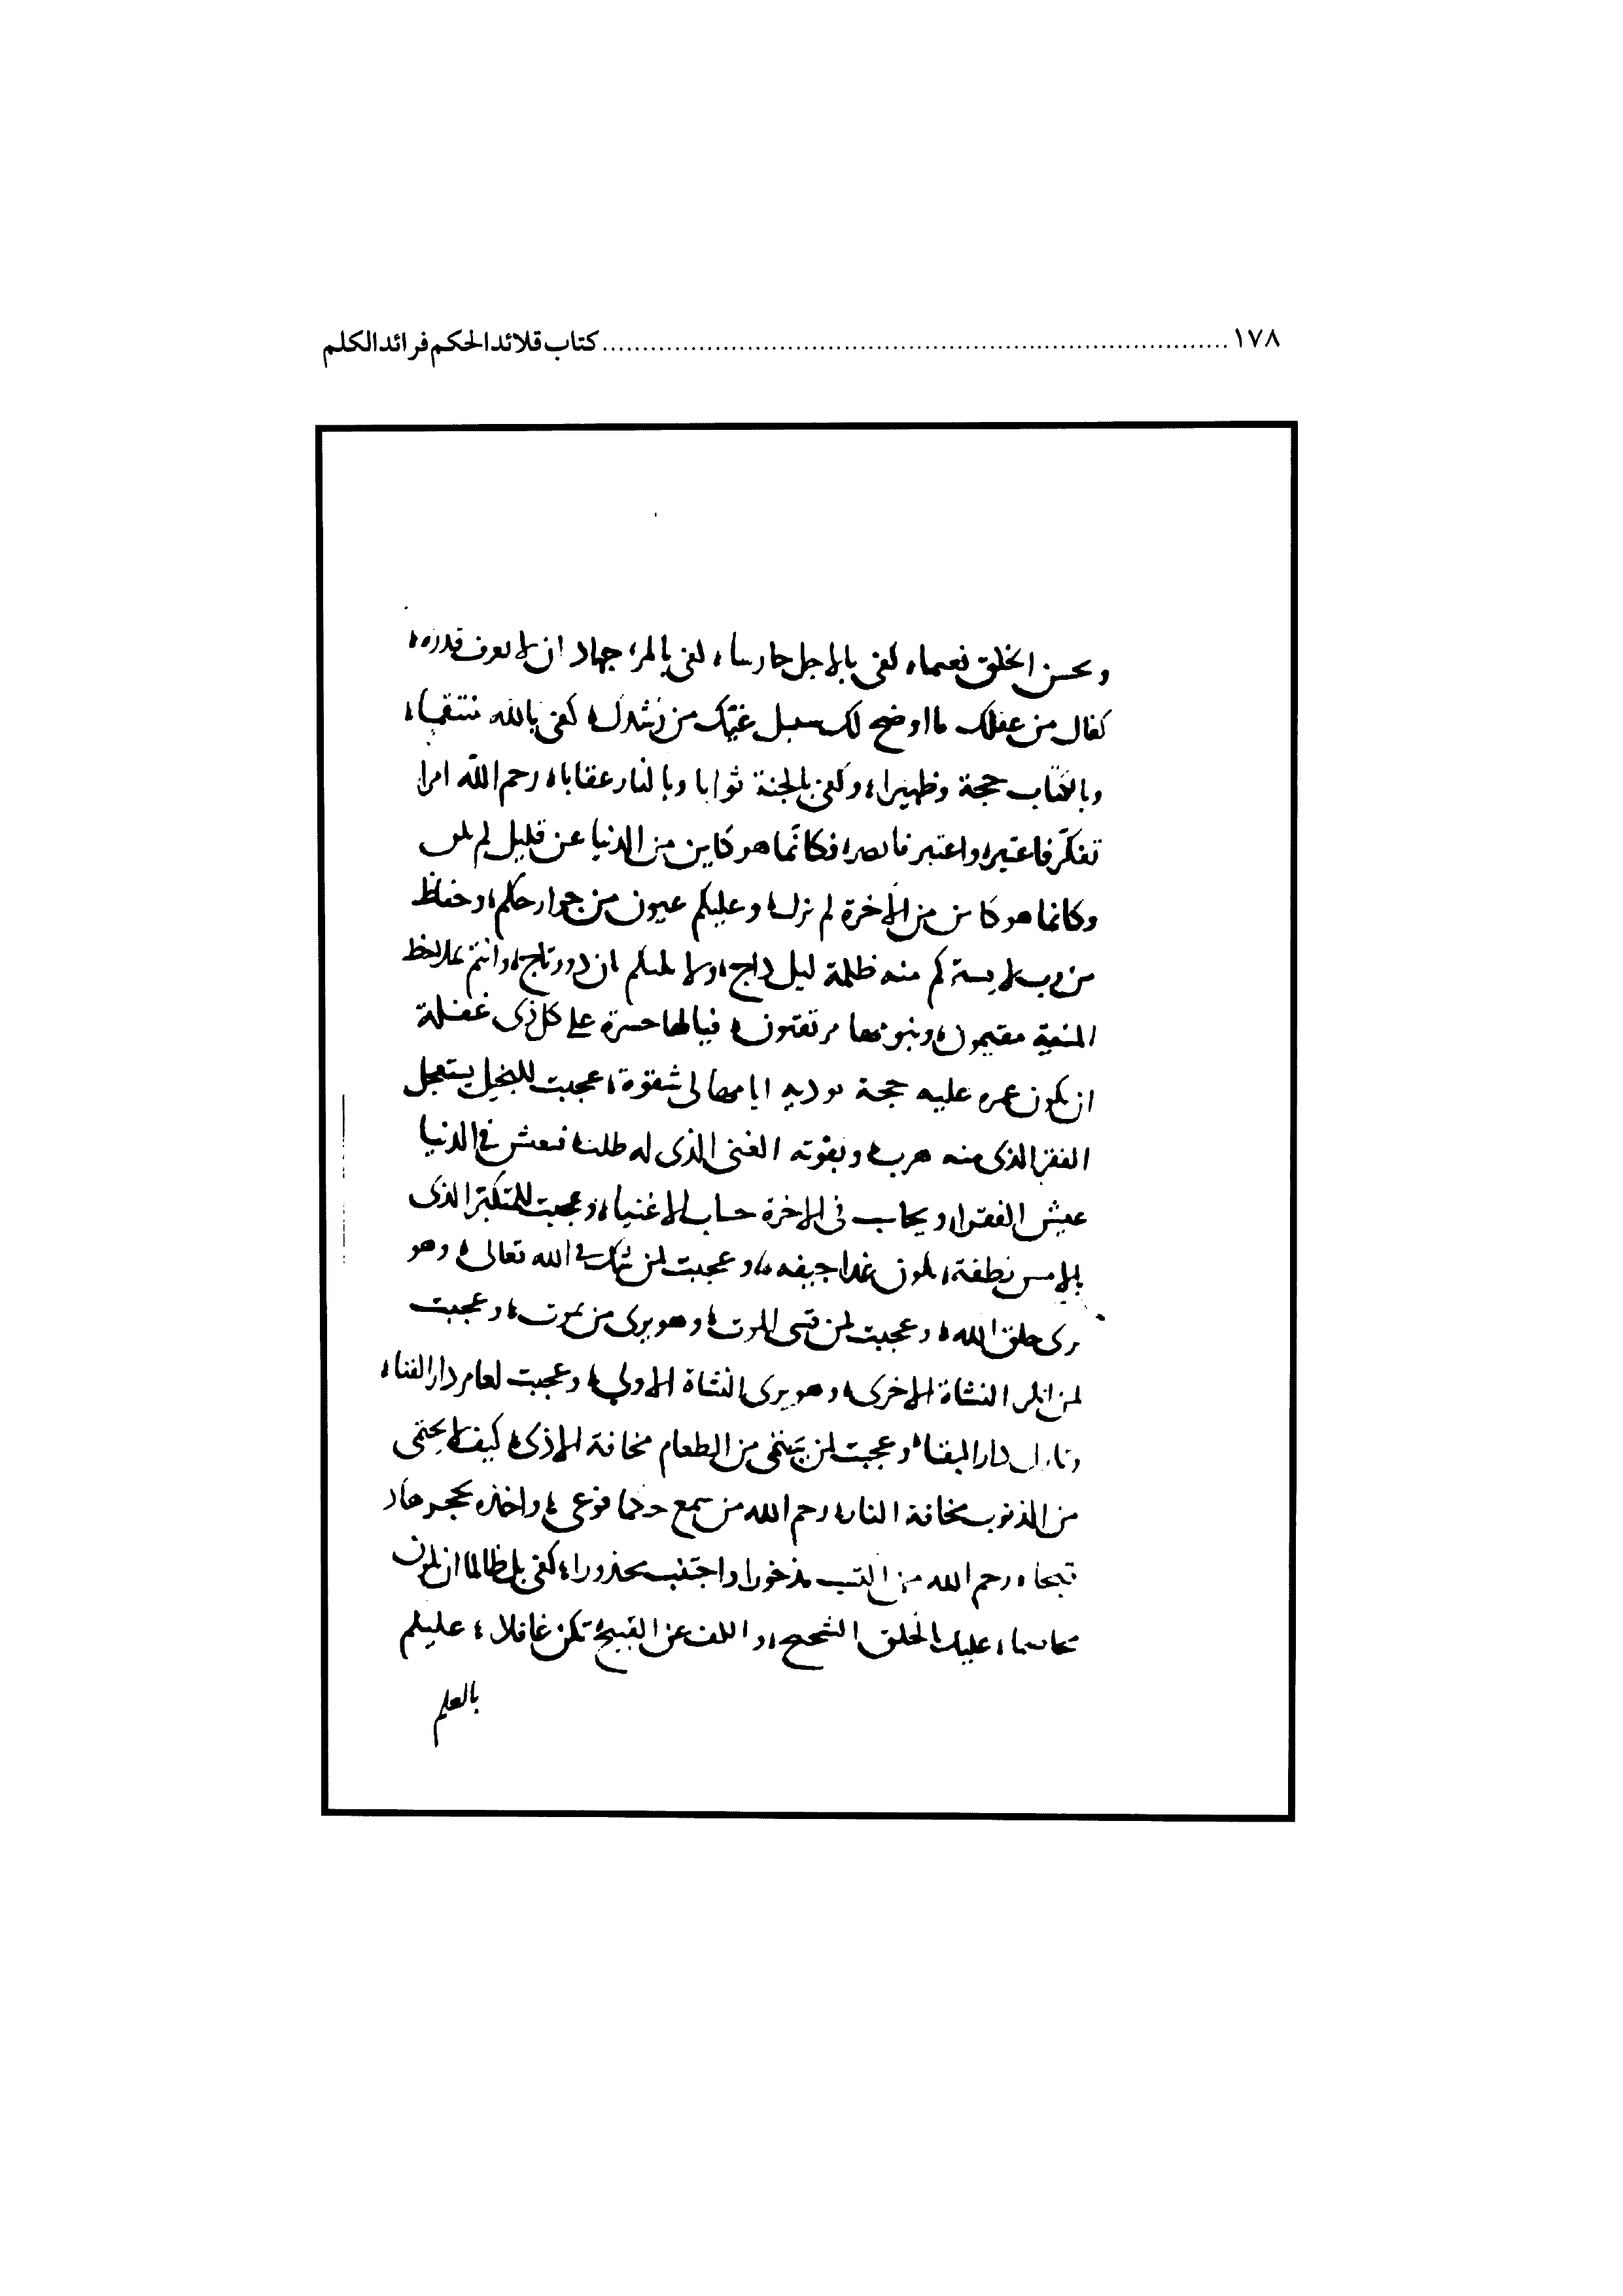 ١٧٨ ........ كتاب قلائد الحكم فرائد الكلم
وبحسن الخلق نعيما، كفى بالاجل حارسا، كفى بالمرء جهلا ان لا يعرف قدره،
كفاك من عقلك ما اوضح لك سبيل غيّك من رشدك، كفى بالله منتقما،
وبالكتاب حجة وظهيرا، وكفى بالجنة ثوابا وبالنار عقابا، رحم الله امرا
تفكّر فاعتبر، واعتبر فابصر، فكانّما هو كاين من الدنيا عن قليل لم يكن
وكانما هو كاين من الآخرة لم يزل، وعليكم عيون من جوارحكم، وحفاظ
من لا يستركم منه ظلمة ليل داج، ولا يكنكم ذو رتاج، وانتم
المنية مقيمون، مرتقبون، فيالها حسرة على كل ذى غفلة
ان يكون عمره عليه حجة توديه ايامه الى شقوة، عجبت للبخيل يستعجل
الفقر الذى منه هرب، ويفوته الغنى الذى له طلب، فيعيش فى الدنيا
عيش الفقراء، ويحاسب فى الاخرة حساب الاغنياء، وعجبت للمتكبّر الذى
بالامس نطفة، يكون غدا جيفه، وعجبت لمن شك فى الله تعالى، وهو
يرى خلق الله، وعجبت لمن نسى الموت، وهو يرى من يموت، وعجبت
لمن انكر النشاة الاخرى، وهو يرى النشاة الاولى، وعجبت لعامر دار الفناء،
وتارك دار البقاء، وعجبت لمن يحتمى من الطعام مخافة الاذى، كيف لا يحتمى
من الذنوب مخافة النار، رحم الله من سمع حكما فوعى، واخذ بحجر هاد
فنجا، رحم الله من اكتسب مذخورا، واجتنب محذورا، كفى بك ظالما ان تكون
مخاصما، عليك الخلق السجيح، والكف عن القبيح، تكن غافلا، عليكم
بالعلم